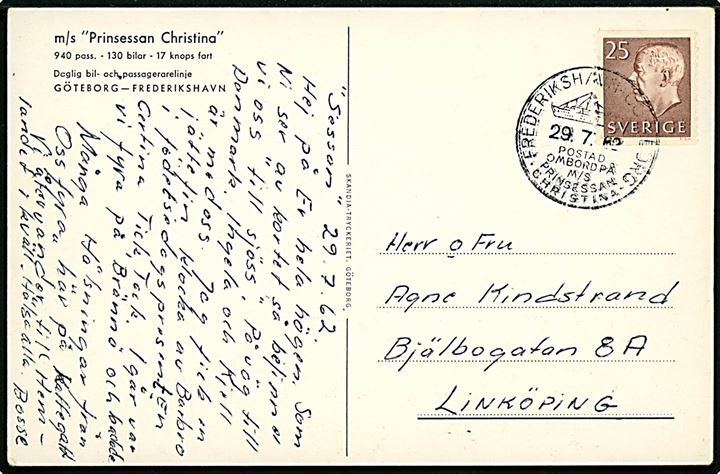 m/s "Prinsessan Christina"
940 pass. - 130 bilar - 17 knops fart
Daglig bil- och passagerarelinje
GÖTEBORG—FREDERIKSHAVN
"Sessan" 29.7.62
Hej på Er hela högen. Som
Ni ser av kortet så befinner
vi oss till sjöss, på väg till
Danmark. Ingela och Kjell
är med oss. Jag fick en
jättefin klocka av Barbro
i födelsedagspresent. EN
Certina Tick Tack. I går var
vi fyra på Brännö och badade
Många Hälsningar från
Oss fyra, här på Kattegatt
Vi återvänder till Hem-
landet i kväll. Hälsa alla. Bosse
SKANDIA-TRYCKERIET, GÖTEBORG.
25
SVERIGE
FREDERIKSHAVN
29.7.
POSTAD
OMBORD PÅ
M/S
PRINSESSAN
CHRISTINA
Herr o Fru
Agne Kindstrand
Bjälbogatan 8A
LINKÖPING